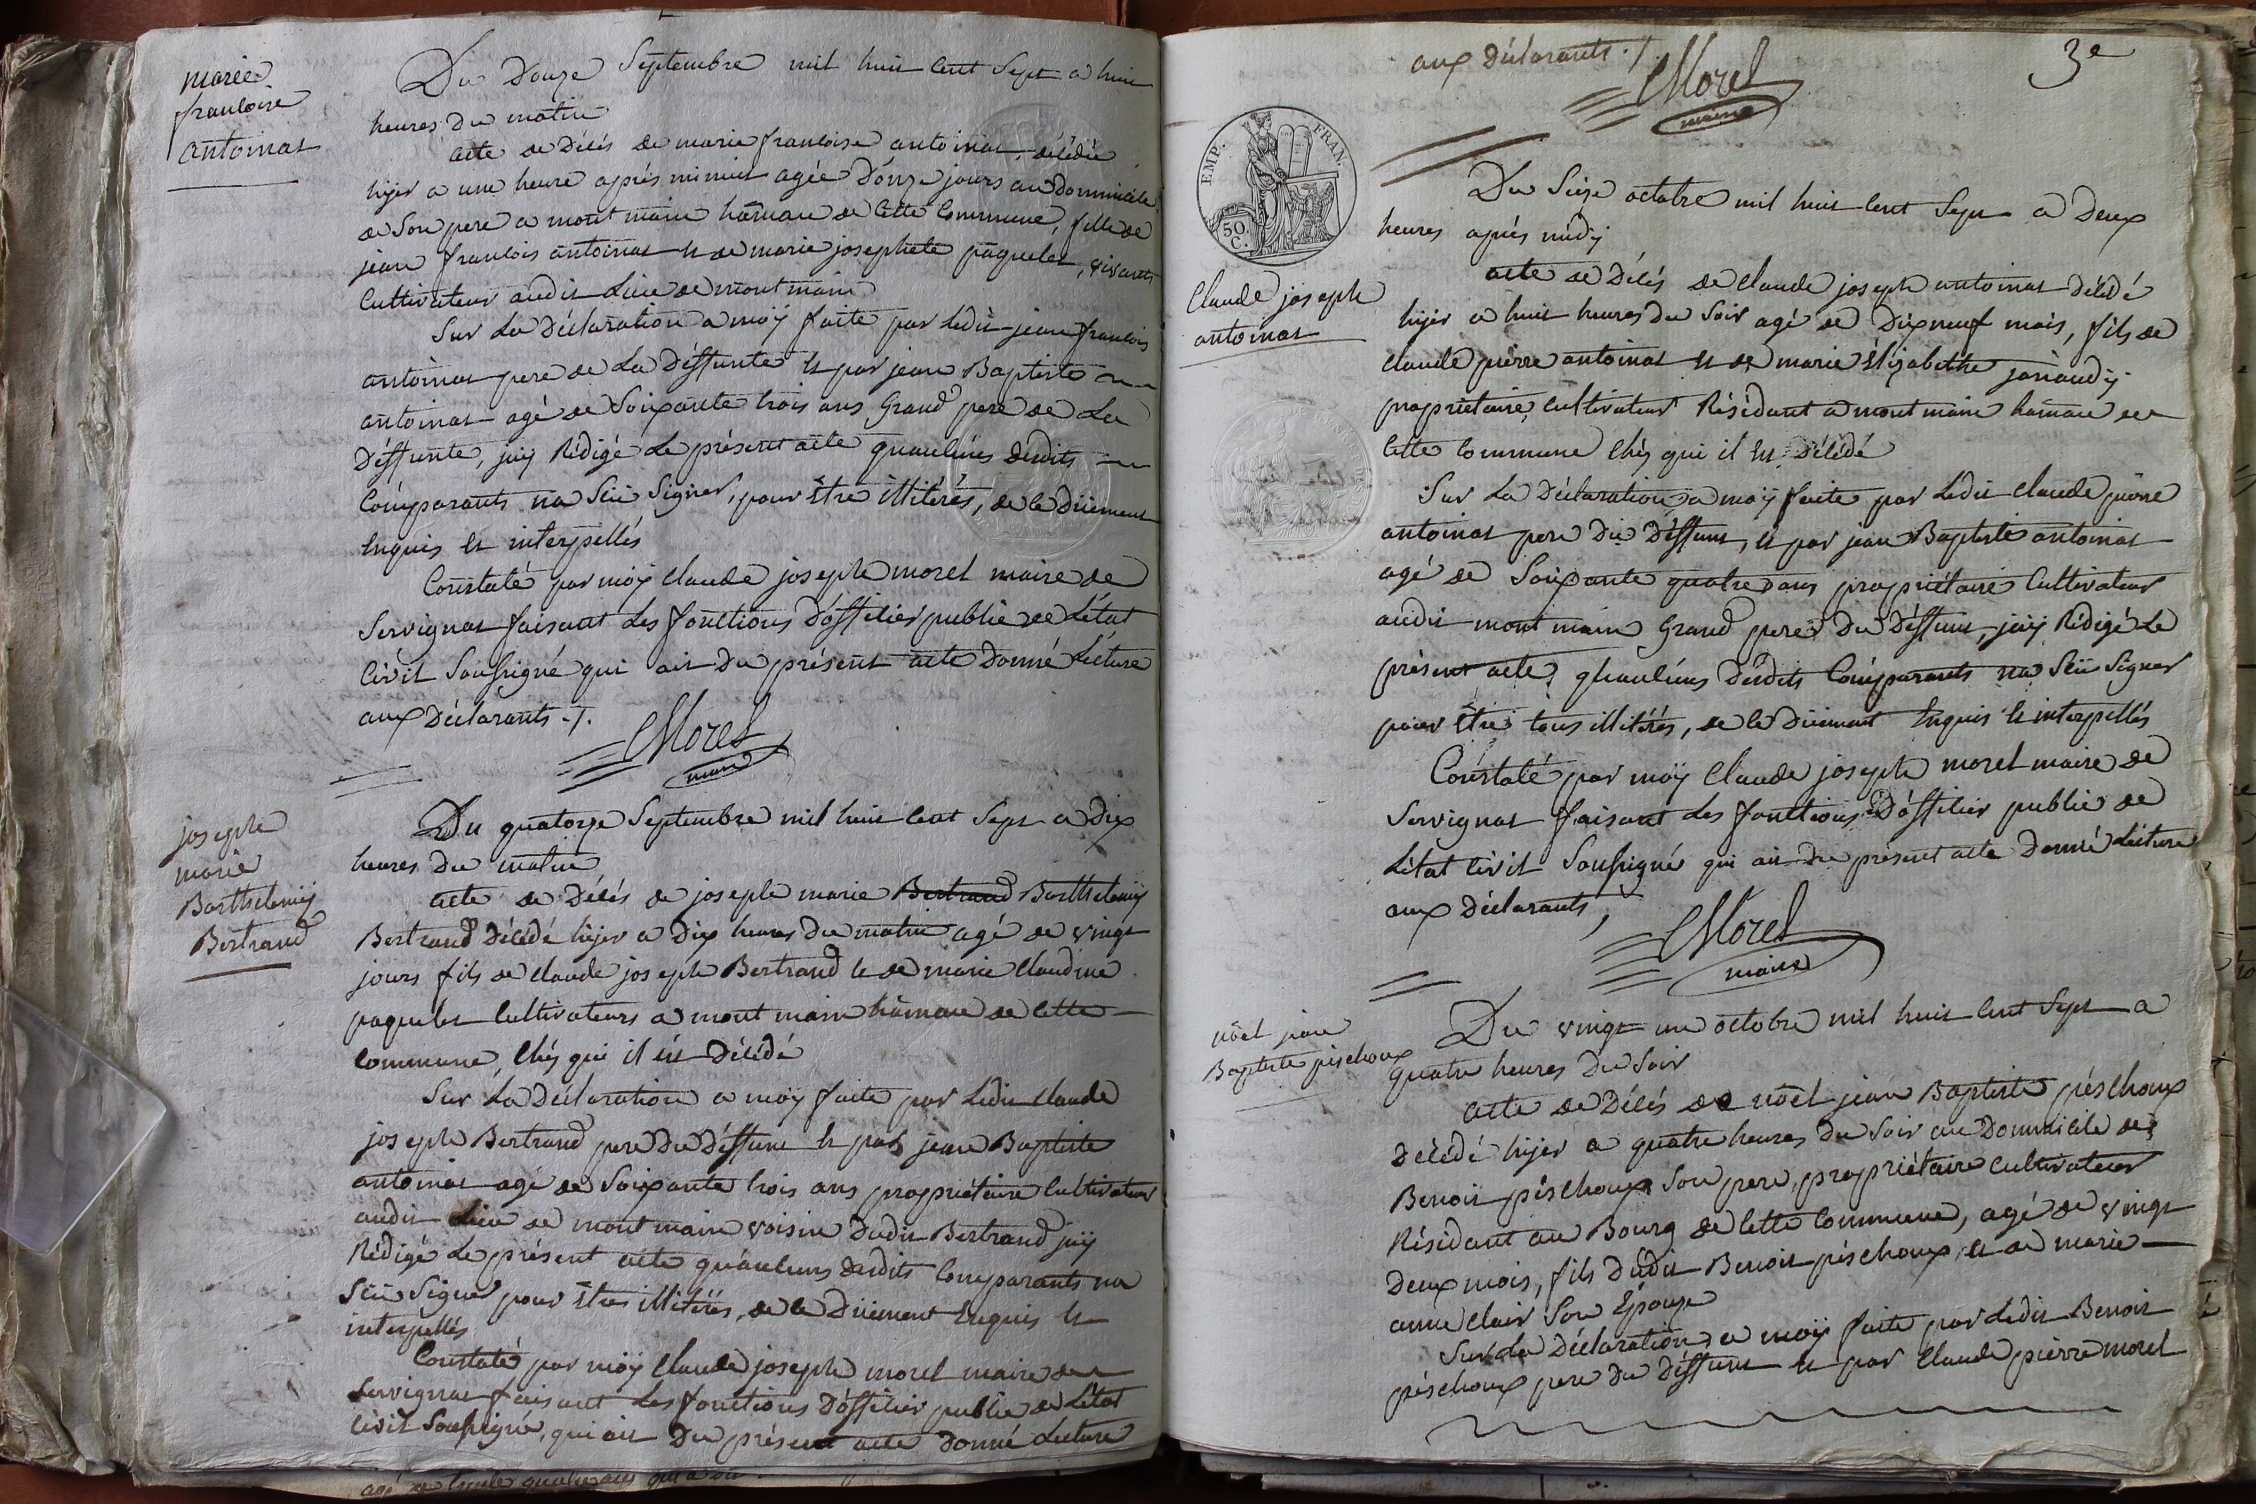 marie
francoise
antoinat
Du Douze Septembre mil huit cent Sept a huit
heures du matin
acte de Décés de marie francoise antoinat, décédée
hijer a une heure aprés minuit agée Dónze jours au Dommicile
de Son pere a mont main hâmau de Cette Commune, fille de
jean francois antoinat et de marie josephete paquelet, vivants
Cultivateur audit Lieu de mont main
Sur La Déclaration a moÿ faite par Ledit jean francois
antoinat pere de La Déffunte et par jean Baptiste
antoinat agé de Soixante trois ans Grand pere de La
Déffunte, jaÿ Rédigé Le présent acte quaucúns desdits
Comparants na Scü Signer, pour Être illitérés, de ce Düement
Enquis et interpellés
Constaté par moÿ Claude joseph morel maire de
Servignat faisant Les fonctions Dófficier public de Létat
Civil Soussigné qui ait du présent acte Donné Lécture
aux Déclarants ./.
CMorel
maire
joseph
marie
Barthelemÿ
Bertrand
Du quatorze Septembre mil huit cent Sept a dix
heures du matin
acte de Décés de joseph marie Bertrand Barthelemÿ
Bertrand Décédé hijer a Dix heures du matin agé de vingt
jours fils de Claude joseph Bertrand et de marie Claudine
paquelet Cultivateurs a mont main hâmau de Cette
Commune, Chés qui il est Décédé
Sur La Déclaration a moÿ faite par Ledit Claude
joseph Bertrand pere du Déffunt et par jean Baptiste
antoinat agé de Soixante trois ans propriétaire Cultivateur
audit Lieu de mont main voisin dudit Bertrand jaÿ
Rédigé Le présent acte quáucuns desdits Comparants na
Scü Signer pour Être illitérés, de ce Düement Enquis et
interpellés
Constaté par moÿ Claude joseph morel maire de
Servignat faisant Les fonctions Dófficier public de Létat
Civil Soussigné, qui ait Du présent acte donné Lecture
aux Déclarants ./.
CMorel
maire
3e
EMP. FRAN.
50.
C.
Claude joseph
antoinat
Du Seize octobre mil huit cent Sept a Deux
heures aprés midÿ
acte de Décés de Claude joseph antoinat Décédé
hijer a huit heures du Soir agé de Dix neuf mois, fils de
Claude pierre antoinat et de marie Elizabethe janaudÿ
propriétaire Cultivateur Résidant a mont main hâmau de
Cette Commune Chés qui il est Décédé
Sur La Déclaration a moÿ faite par Ledit Claude pierre
antoinat pere Du Déffunt, et par jean Baptiste antoinat
agé de Soixante quatre ans propriétaire Cultivateur
audit mont main Grand pere Du Déffunt, jaÿ Rédigé Le
présent acte, quaucúns Desdits Comparants na Scü Signer
pour Être tous illitérés, de ce Düement Enquis et interpellés
Constaté par moÿ Claude joseph morel maire de
Servignat faisant Les fonctions Dófficier public de
Létat Civil Soussigné qui ait du présent acte Donné Lécture
aux Déclarants,
CMorel
maire
nöel jean
Baptiste péschoux
Du vingt un octobre mil huit cent Sept a
quatre heures du Soir
acte de Décés de nöel jean Baptiste péschoux
Décédé hijer a quatre heures du Soir au Dommicile de
Benoit péschoux Son pere, propriétaire Cultivateur
Résidant au Bourg de Cette Commune, agé de vingt
Deux mois, fils dudit Benoit péschoux et de marie
anne Clair Son Épouse
Sur La Déclaration a moÿ faite par Ledit Benoit
péschoux pere du Déffunt et par Claude pierre morel